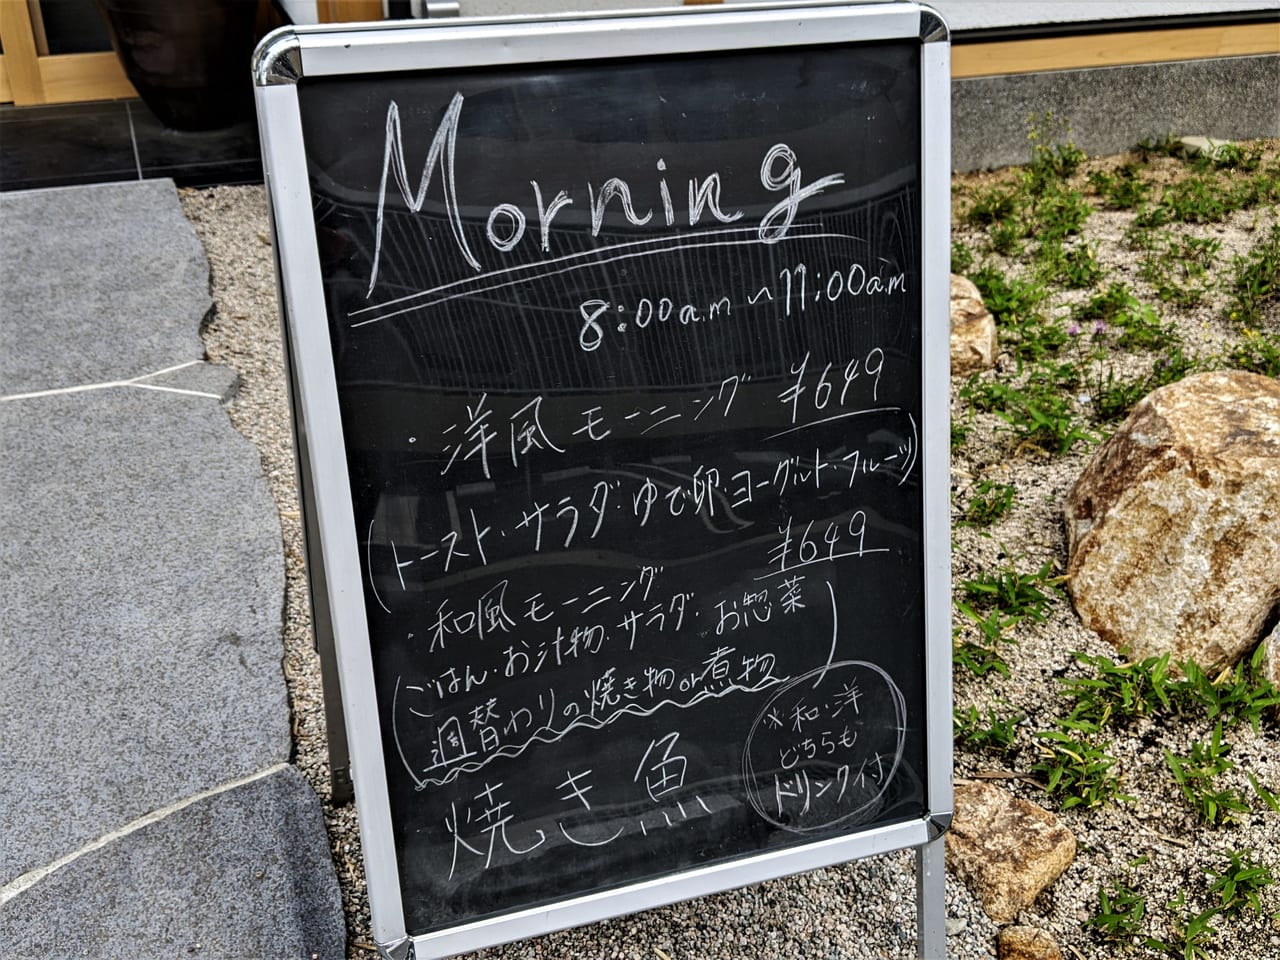 Morning
8:00a.m ~ 11:00a.m
・洋風モーニング ¥649
(トースト・サラダ・ゆで卵・ヨーグルト・フルーツ)
・和風モーニング ¥649
(ごはん・お汁物・サラダ・お惣菜
週替わりの焼き物or煮物)
焼き魚
※和・洋
どちらも
ドリンク付